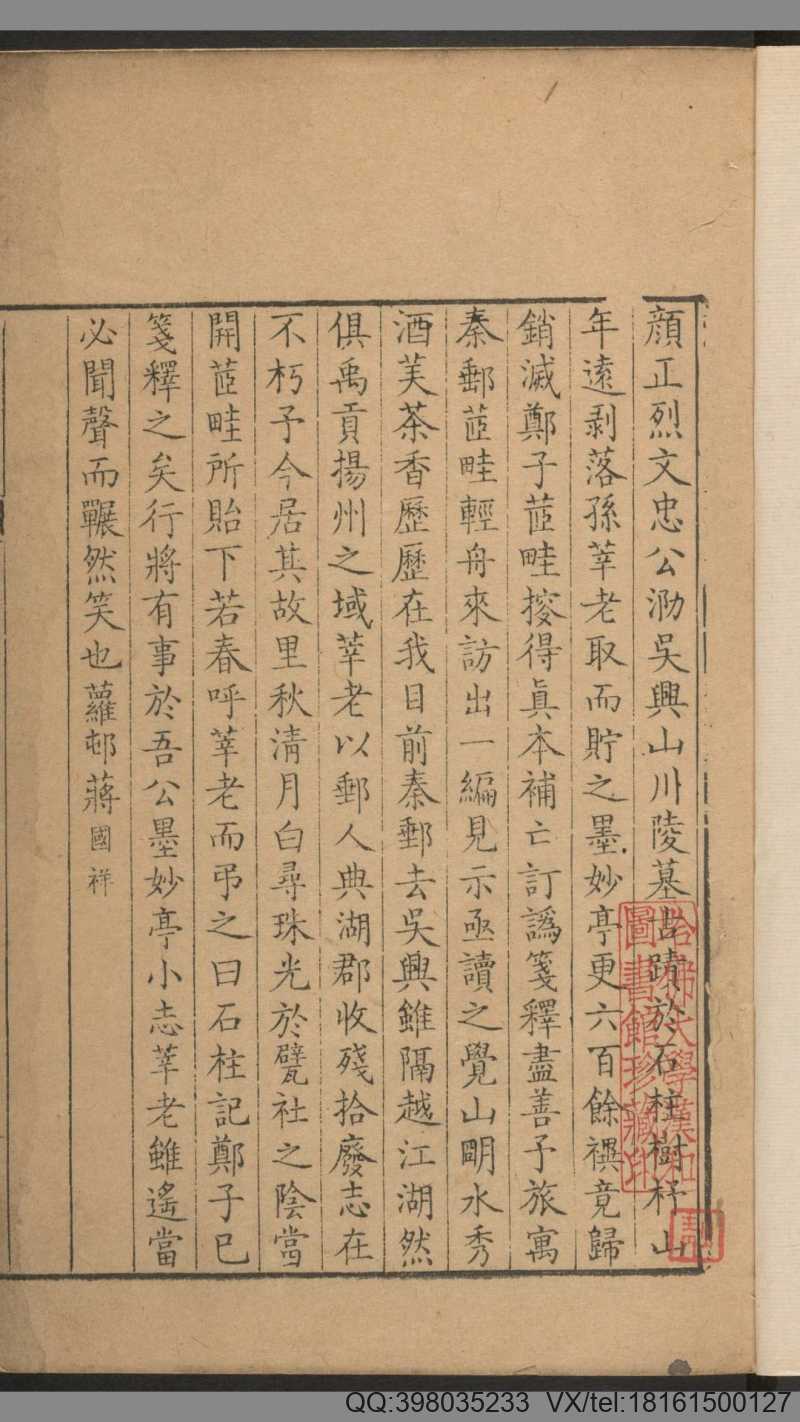 顔正烈文忠公泐吳興山川陵墓古蹟於石柱樹杼山
年遠剥落孫莘老取而貯之墨妙亭更六百餘禩竟歸
銷滅鄭子茝畦㨙得眞本補亡訂譌箋釋盡善予旅寓
秦郵茝畦輕舟來訪出一編見示亟讀之覺山明水秀
酒美茶香歷歷在我目前秦郵去吳興雖隔越江湖然
俱禹貢揚州之域莘老以郵人典湖郡收殘拾廢志在
不朽予今居其故里秋清月白尋珠光於甓社之陰當
開茝畦所貽下若春呼莘老而弔之曰石柱記鄭子已
箋釋之矣行將有事於吾公墨妙亭小志莘老雖遙當
必聞聲而囅然笑也蘿邨蔣國祥
哈佛大學漢和
圖書館珍藏印
QQ:398035233 VX/tel:18161500127